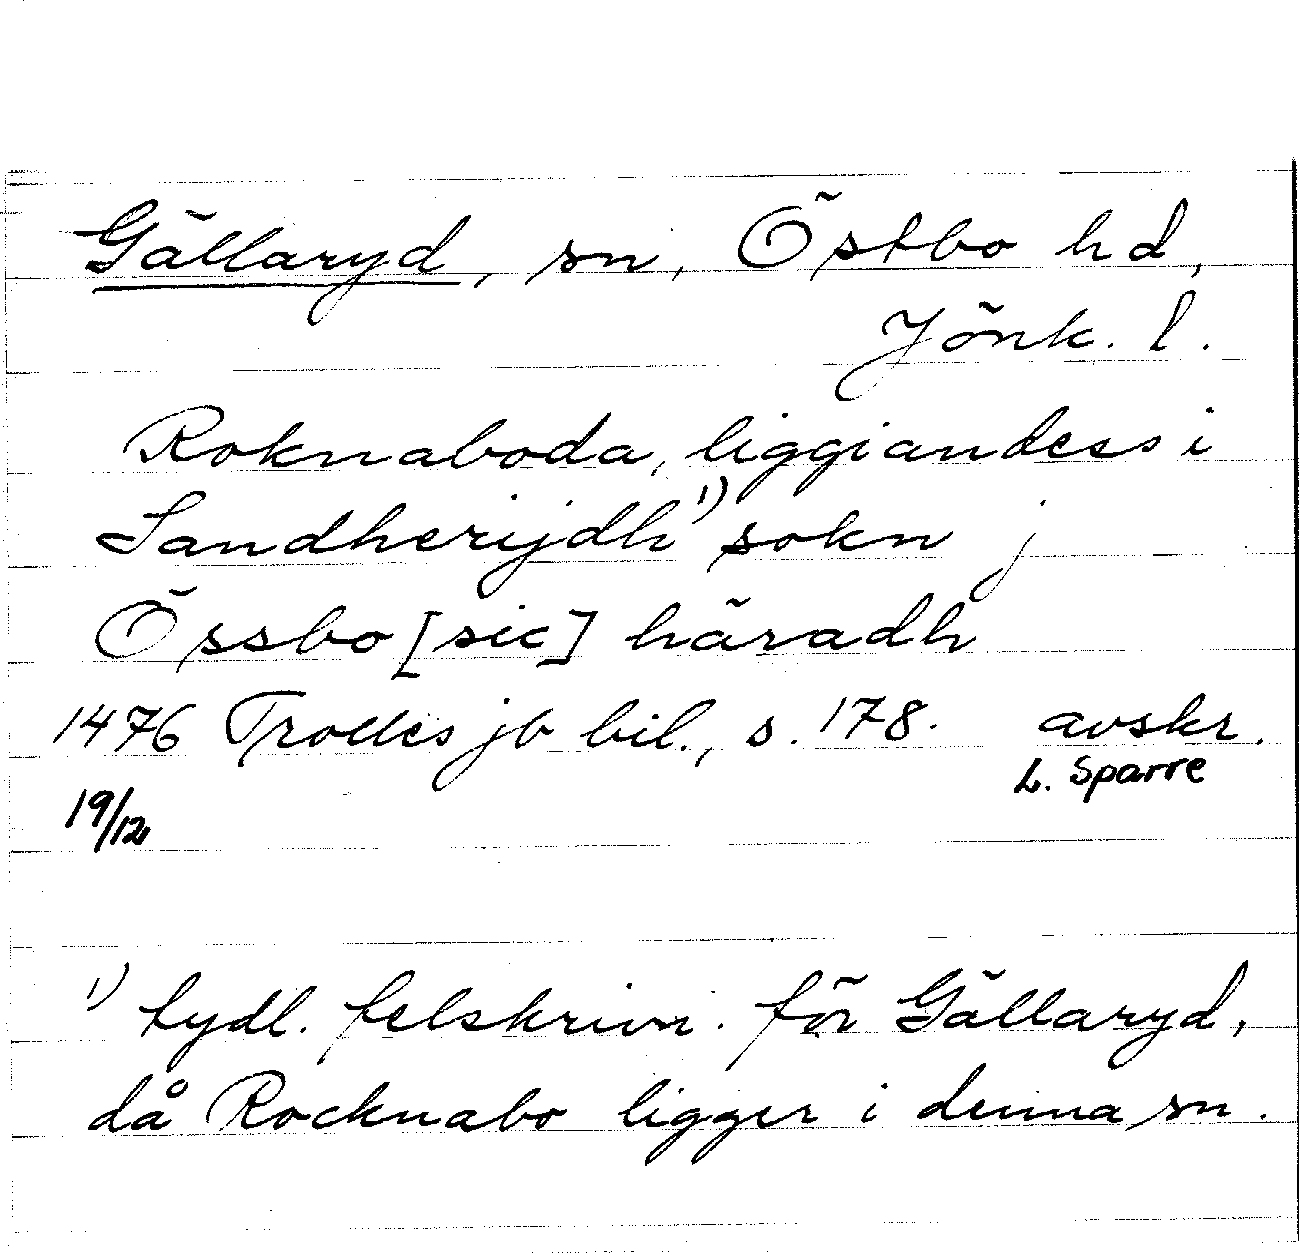 Gällaryd, sn, Östbo hd,
Jönk. l.
Roknaboda, liggiandess i
Sandherijdh¹⁾ sokn j
Össbo [sic] häradh
1476 Trolles jb bil., s. 178. avskr.
L. Sparre
19/12
¹⁾ tydl. felskrivn. för Gällaryd,
då Rocknabo ligger i denna sn.